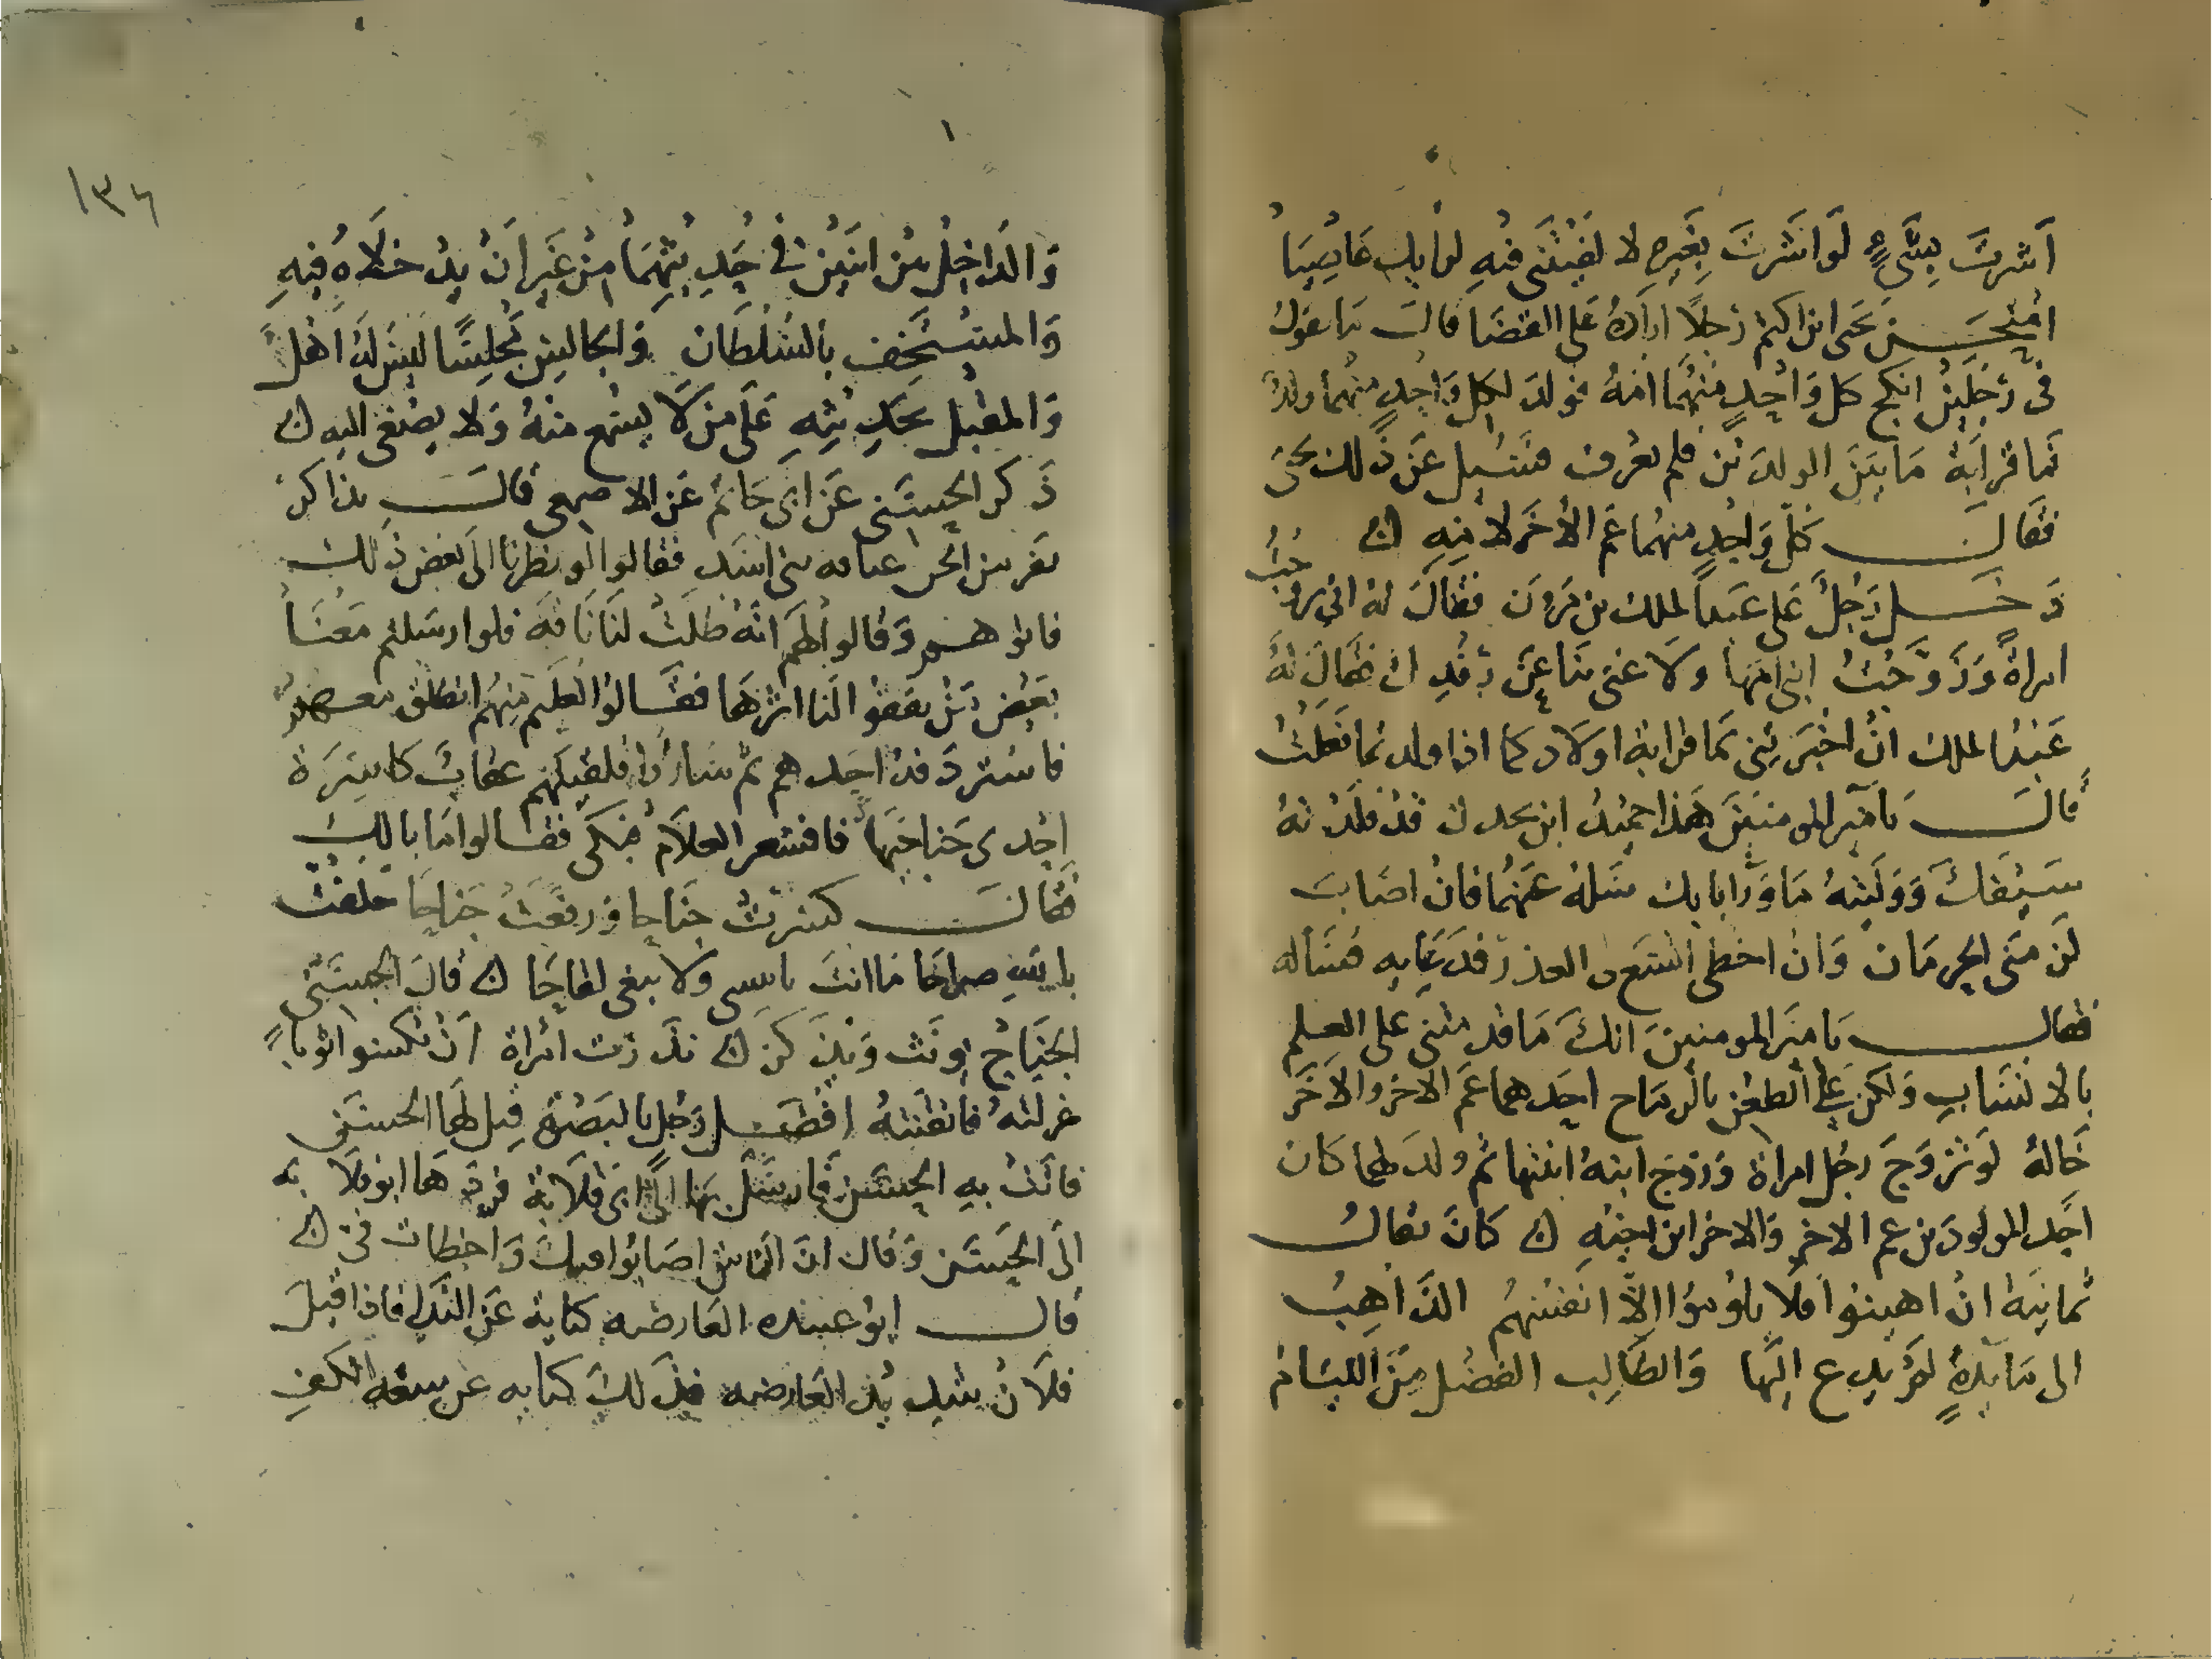 اشرت بشيء لو اشرت بغيره لا لفيتني فيه لرايك عاصيا
امتحن يحيى ابن اكثم رجلا اراده على القضا قال ما تقول
في رجلين انكح كل واحد منهما امه فولد لكل واحد منهما ولد
فما قرابة ما بين الولدين فلم يعرف فسئل عن ذلك يحيى
فقال كل واحد منهما عم الاخر لامه
دخل رجل على عبد الملك بن مرون فقال له اني تزوجت
امراة وزوجت ابني امها ولا غنى بنا عن رفدك فقال له
عبد الملك ان اخبرتني ما قرابة اولادكما اذا ولدتما فعلت
قال يا امير المومنين هذا حميد ابن بحدل قد قلدته
سيفك ووليته ما ورا بابك سله عنهما فان اصاب
لزمني الحرمان وان اخطى اتسع لي العذر فدعا به فساله
فقال يا امير المومنين انك ما قدمتني على العلم
بالانساب ولكن على الطعن بالرماح احدهما عم الاخر والاخر
خاله لو تزوج رجل امراة وزوج ابنه ابنتها ثم ولد لهما كان
احد المولودين عم الاخر والاخر ابن اخته كان يقال
ثمانية ان اهينوا فلا يلوموا الا انفسهم الذاهب
الى مايدة لم يدع اليها والطالب الفضل من اللئام
١٣٦
والداخل بين اثنين في حديثهما من غير ان يدخلاه فيه
والمستخف بالسلطان والجالس مجلسا ليس له اهل
والمقبل بحديثه على من لا يسمع منه ولا يصغى اليه
ذكر السجستاني عن ابي حاتم عن الاصمعي قال تذاكر
نفر من الجن عيافه بني اسد فقالوا لو نظرنا الى بعض ذلك
فاتوهم وقالوا لهم انه ضلت لنا ناقة فلو ارسلتم معنا
بعض من يقفوا لنا اثرها فقالوا لغليم منهم انطلق معهم
فاستردفه احدهم ثم ساروا فلقيتهم عقاب كاسرة
احدى جناحيها فاقشعر الغلام فبكى فقالوا ما بالك
فقال كسرت جناحا ورفعت جناحا حلفت
بالله صراحا ما انت بانسي ولا تبغي لقاحا قال
الجناح يونث ويذكر نذرت امراة ان تكسو اثوابا
غزلته فاتقنته افضل رجل بالبصرة قيل لها الحسن
فاتت به الحسن فارسل بها الى ابي قلابة فردها ابو قلابه
الى الحسن وقال ان الناس اصابوا فيك واخطات في
قال ابو عبيده العارضه كناية عن الندى فاذا قيل
فلان شديد العارضه فذلك كنايه عن سعه الكف